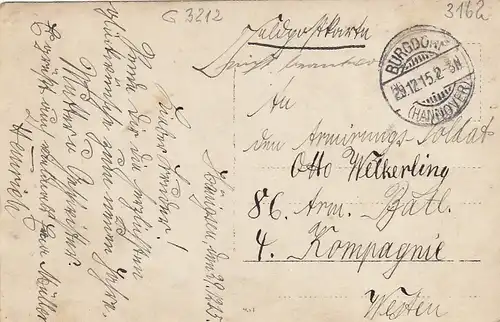 G 3212
3162
Feldpostkarte
BURGDORF
29.12.15.2-3N
(HANNOVER)
An
den Armierungs-Soldat
Otto Welkerling
86. Arm. Batl.
4. Kompagnie
Westen
Hänigsen, den 29.12.15
Lieber Bruder!
Sende dir die herzlichsten
Glückwünsche zum neuen Jahre.
Mutter u. Geschwister
Heinrich